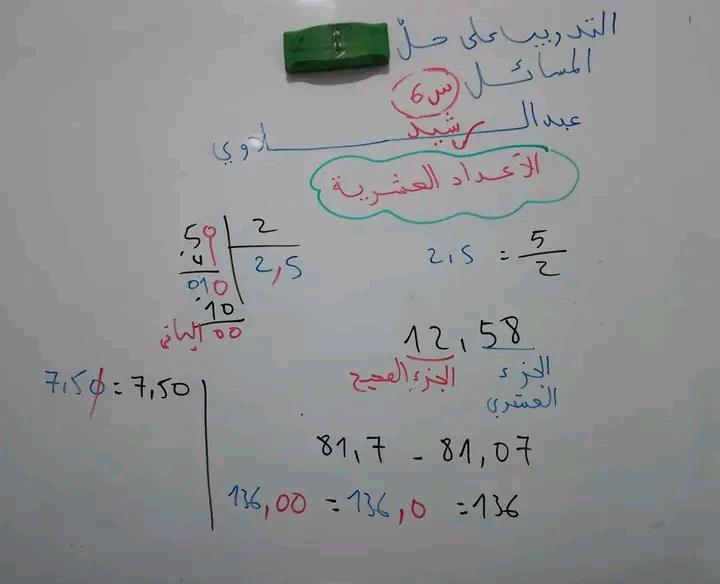 التدريب على حلّ
المسائل
س6
عبدالرشيد ـلاوي
الأعداد العشرية
50 | 2
4 | 2,5
010
10
00 الباقي
2,5 = 5/2
12,58
الجزء الصحيح
الجزء العشري
7,50 = 7,50
81,7 - 81,07
136,00 = 136,0 = 136